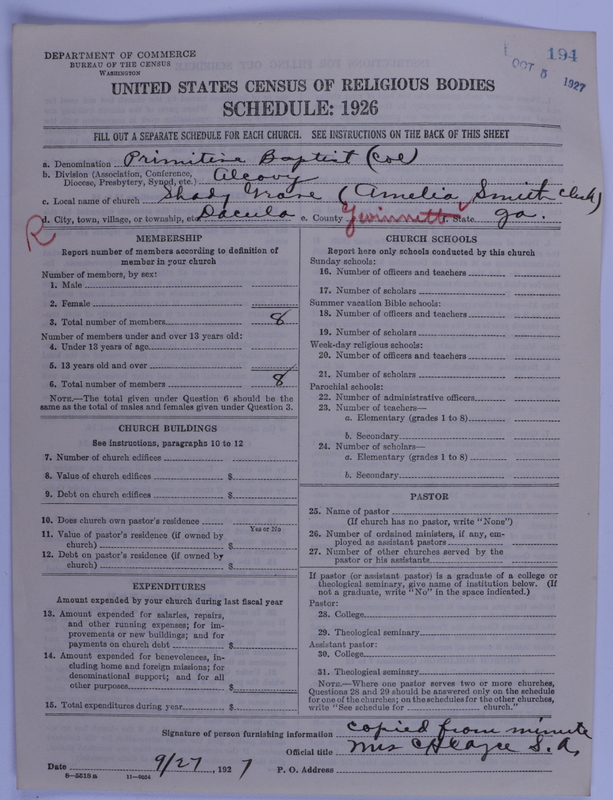 194
OCT 5 1927
DEPARTMENT OF COMMERCE
BUREAU OF THE CENSUS
WASHINGTON
UNITED STATES CENSUS OF RELIGIOUS BODIES
SCHEDULE: 1926
FILL OUT A SEPARATE SCHEDULE FOR EACH CHURCH. SEE INSTRUCTIONS ON THE BACK OF THIS SHEET
a. Denomination Primitive Baptist (Col)
b. Division (Association, Conference, Diocese, Presbytery, Synod, etc.) Alcovy
c. Local name of church Shady Grove (Amelia Smith Clerk)
d. City, town, village, or township, etc. Dacula e. County Gwinnett f. State Ga.
R
MEMBERSHIP
Report number of members according to definition of
member in your church
Number of members, by sex:
1. Male
2. Female
3. Total number of members 8
Number of members under and over 13 years old:
4. Under 13 years of age
5. 13 years old and over
6. Total number of members 8
NOTE.—The total given under Question 6 should be the
same as the total of males and females given under Question 3.
CHURCH BUILDINGS
See instructions, paragraphs 10 to 12
7. Number of church edifices
8. Value of church edifices $
9. Debt on church edifices $
10. Does church own pastor's residence
Yes or No
11. Value of pastor's residence (if owned by
church) $
12. Debt on pastor's residence (if owned by
church) $
EXPENDITURES
Amount expended by your church during last fiscal year
13. Amount expended for salaries, repairs,
and other running expenses; for im-
provements or new buildings; and for
payments on church debt $
14. Amount expended for benevolences, in-
cluding home and foreign missions; for
denominational support; and for all
other purposes $
15. Total expenditures during year $
CHURCH SCHOOLS
Report here only schools conducted by this church
Sunday schools:
16. Number of officers and teachers
17. Number of scholars
Summer vacation Bible schools:
18. Number of officers and teachers
19. Number of scholars
Week-day religious schools:
20. Number of officers and teachers
21. Number of scholars
Parochial schools:
22. Number of administrative officers
23. Number of teachers—
a. Elementary (grades 1 to 8)
b. Secondary
24. Number of scholars—
a. Elementary (grades 1 to 8)
b. Secondary
PASTOR
25. Name of pastor
(If church has no pastor, write "None")
26. Number of ordained ministers, if any, em-
ployed as assistant pastors
27. Number of other churches served by the
pastor or his assistants
If pastor (or assistant pastor) is a graduate of a college or
theological seminary, give name of institution below. (If
not a graduate, write "No" in the space indicated.)
Pastor:
28. College
29. Theological seminary
Assistant pastor:
30. College
31. Theological seminary
NOTE.—Where one pastor serves two or more churches,
Questions 28 and 29 should be answered only on the schedule
for one of the churches; on the schedules for the other churches,
write "See schedule for church."
Signature of person furnishing information copied from minute
Official title Mrs S. A.
Date 9/27, 1927 P. O. Address
8-5513a 11-9024